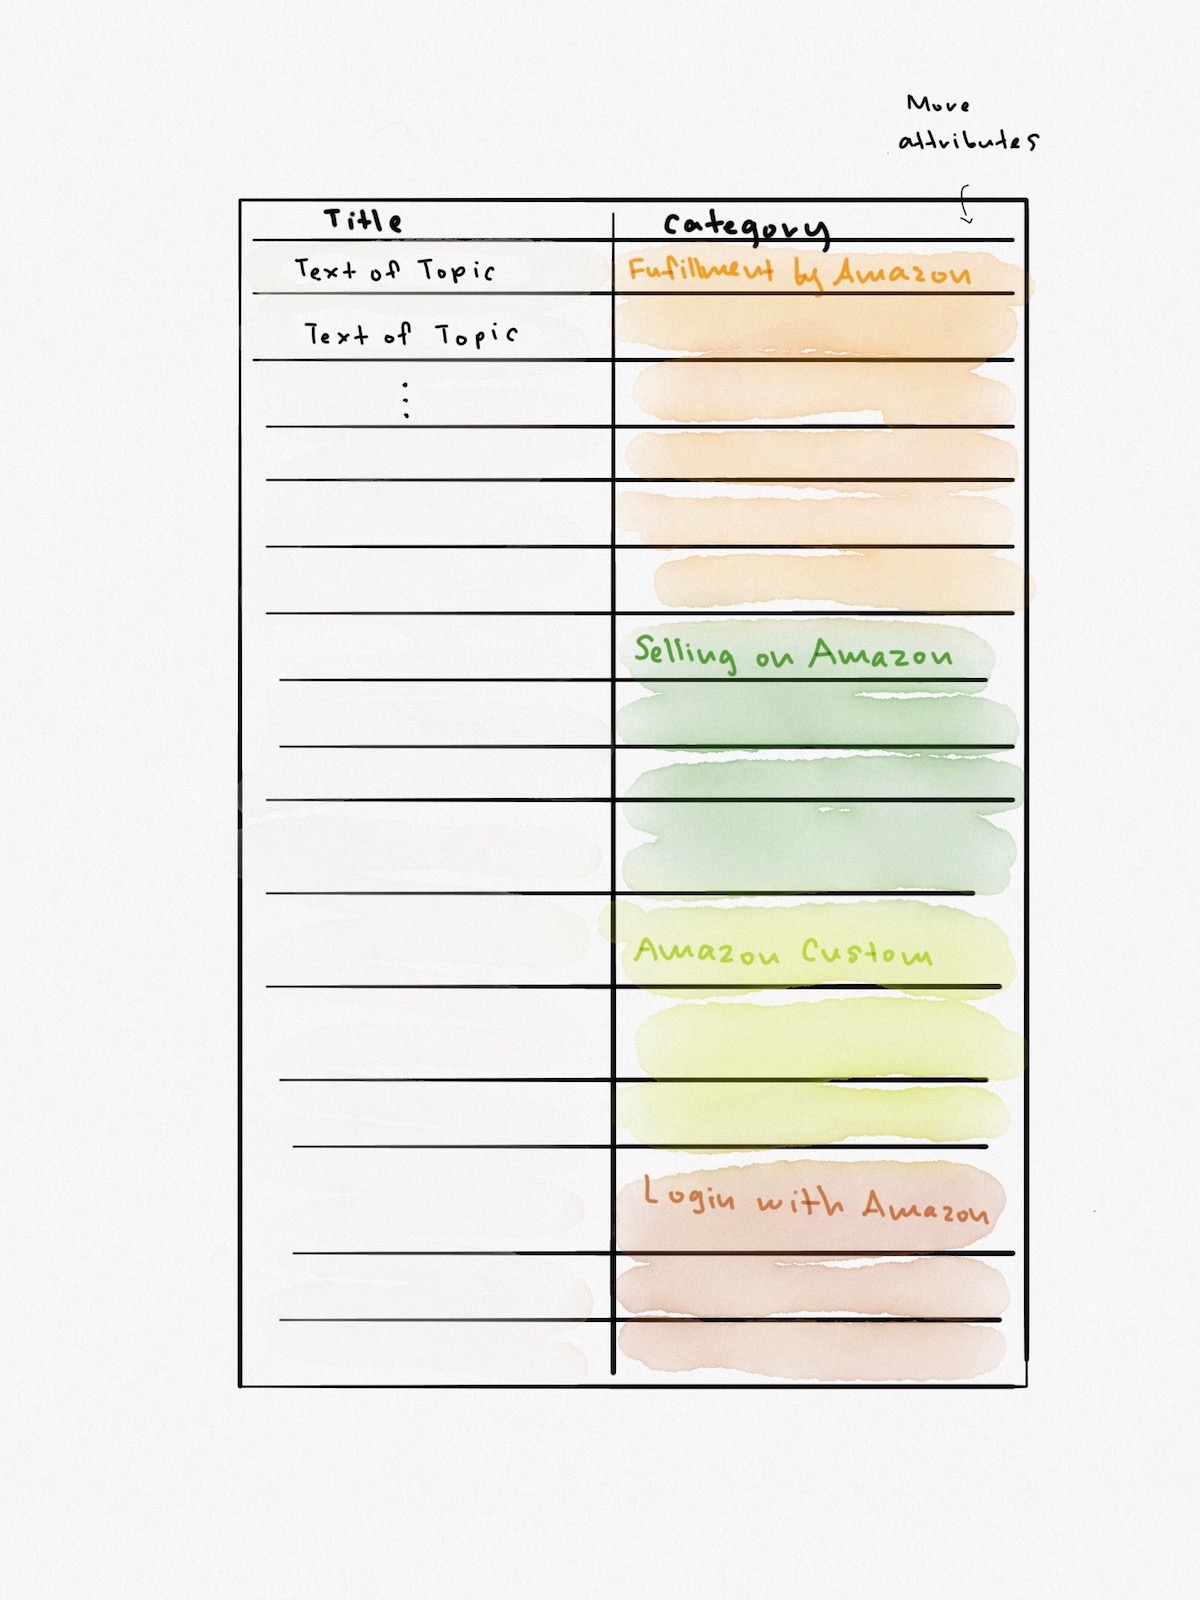 More
attributes
Title Category
Text of Topic Fufillment by Amazon
Text of Topic
Selling on Amazon
Amazon Custom
Login with Amazon